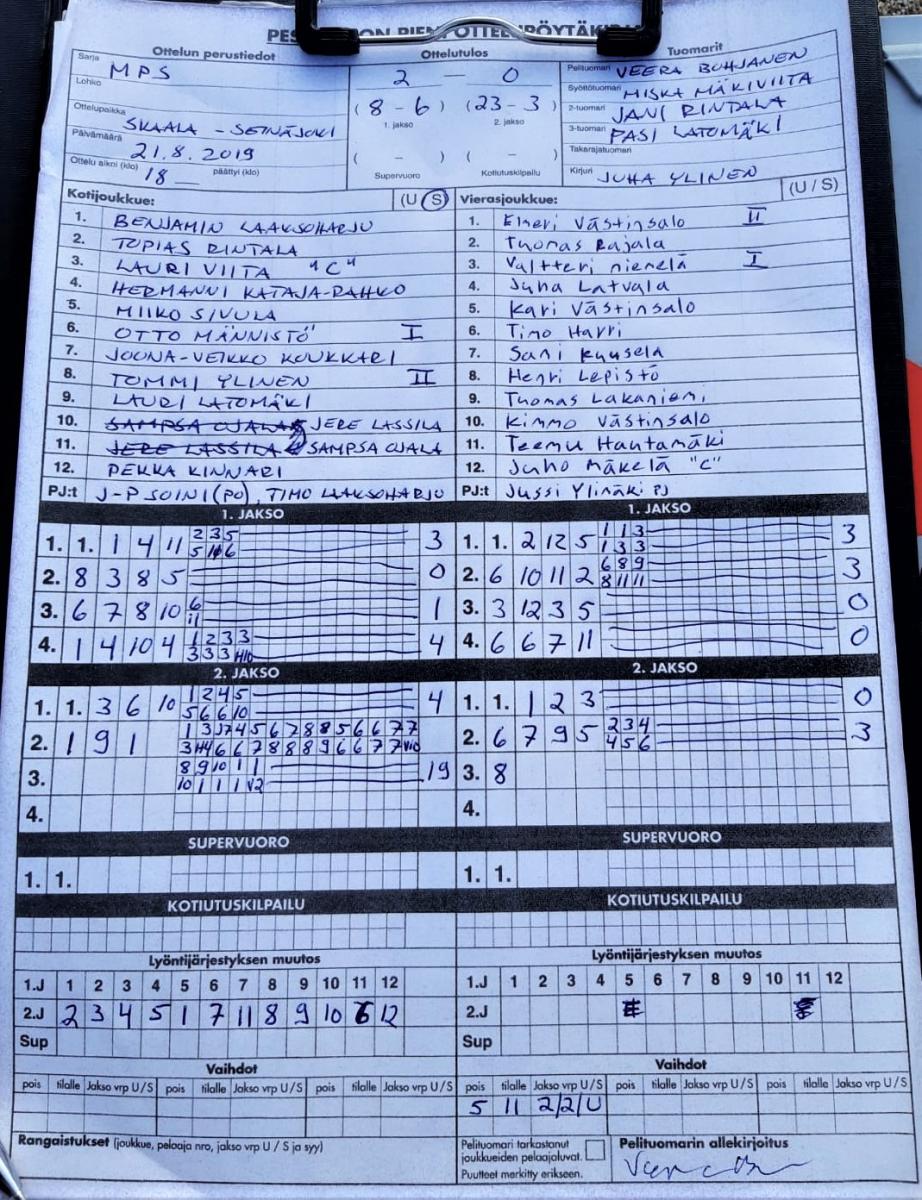 Ottelun perustiedot Ottelutulos Tuomarit
Sarja MPS 2 – 0 Pelituomari VEERA BOHJANEN
Lohko (8 – 6) (23 – 3) Syöttötuomari MISKA MÄKIVIITA
1. jakso 2. jakso 2-tuomari JANI RINTALA
Ottelupaikka SKAALA – SEINÄJOKI 3-tuomari PASI LATOMÄKI
Päivämäärä 21.8.2019 ( – ) ( – ) Takarajatuomari
Ottelu alkoi (klo) 18 päättyi (klo) Supervuoro Kotiutuskilpailu Kirjuri JUHA YLINEN
Kotijoukkue: (U S) Vierasjoukkue: (U / S)
1. BENJAMIN LAAKSOHARJU 1. Elmeri Västinsalo II
2. TOPIAS RINTALA 2. Tuomas Rajala
3. LAURI VIITA "C" 3. Valtteri niemelä I
4. HERMANNI KATAJA-RAHKO 4. Juha Latvala
5. MIIKO SIVULA 5. Kari Västinsalo
6. OTTO MÄNNISTÖ I 6. Timo Harri
7. JOONA-VEIKKO KOUKKARI 7. Sami Kuusela
8. TOMMI YLINEN II 8. Henri Lepistö
9. LAURI LATOMÄKI 9. Tuomas Lakaniemi
10. SAMPSA OJALA JERE LASSILA 10. Kimmo Västinsalo
11. JERE LASSILA SAMPSA OJALA 11. Teemu Hautamäki
12. PEKKA KINNARI 12. Juho Mäkelä "C"
PJ:t J-P SOINI (PO), TIMO LAAKSOHARJU PJ:t Jussi Ylimäki PJ
1. JAKSO 1. JAKSO
1. 1. 1 4 11 2 3 5 3 1. 1. 2 12 5 1 1 3 3
5 6 1 3 3
2. 8 3 8 5 0 2. 6 10 11 2 6 8 9 3
8 11 11
3. 6 7 8 10 6 1 3. 3 12 3 5 0
11
4. 1 4 10 4 1 2 3 3 4 4. 6 6 7 11 0
3 3 3 H10
2. JAKSO 2. JAKSO
1. 1. 3 6 10 1 2 4 5 4 1. 1. 1 2 3 0
5 6 6 10
2. 1 9 1 2. 6 7 9 5 2 3 4 3
4 5 6
3. 8 9 10 1 1 19 3. 8
10 1 1 1 V2
4. 4.
SUPERVUORO SUPERVUORO
1. 1. 1. 1.
KOTIUTUSKILPAILU KOTIUTUSKILPAILU
Lyöntijärjestyksen muutos Lyöntijärjestyksen muutos
1.J 1 2 3 4 5 6 7 8 9 10 11 12 1.J 1 2 3 4 5 6 7 8 9 10 11 12
2.J 2 3 4 5 1 7 11 8 9 10 6 12 2.J
Sup Sup
Vaihdot Vaihdot
pois tilalle Jakso vrp U/S pois tilalle Jakso vrp U/S pois tilalle Jakso vrp U/S pois tilalle Jakso vrp U/S pois tilalle Jakso vrp U/S pois tilalle Jakso vrp U/S
5 11 2/2/U
Rangaistukset (joukkue, pelaaja nro, jakso vrp U / S ja syy) Pelituomari tarkastanut Pelituomarin allekirjoitus
joukkueiden pelaajaluvat.
Puutteet merkitty erikseen.